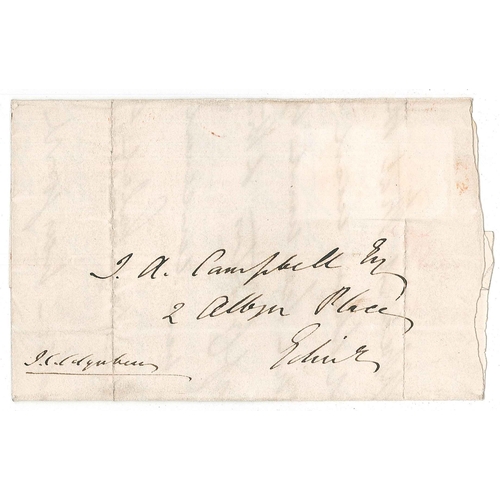 J. A. Campbell Esq
2 Albyn Place
Edinr
J. C. Colquhoun